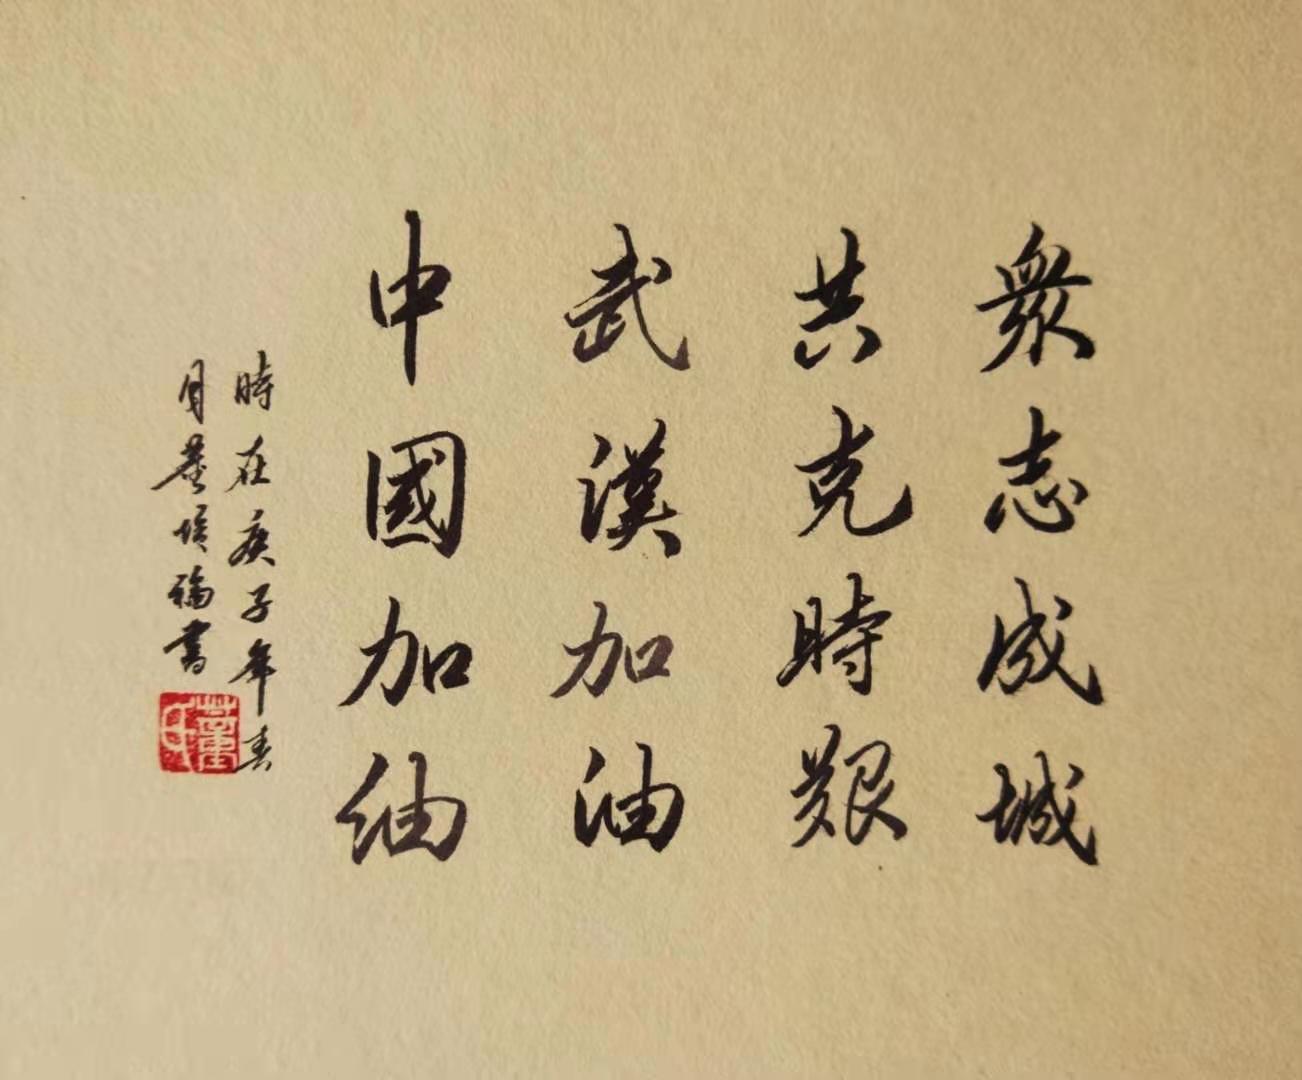 衆志成城
共克時艱
武漢加油
中國加油
時在庚子年春
月董福書
董氏